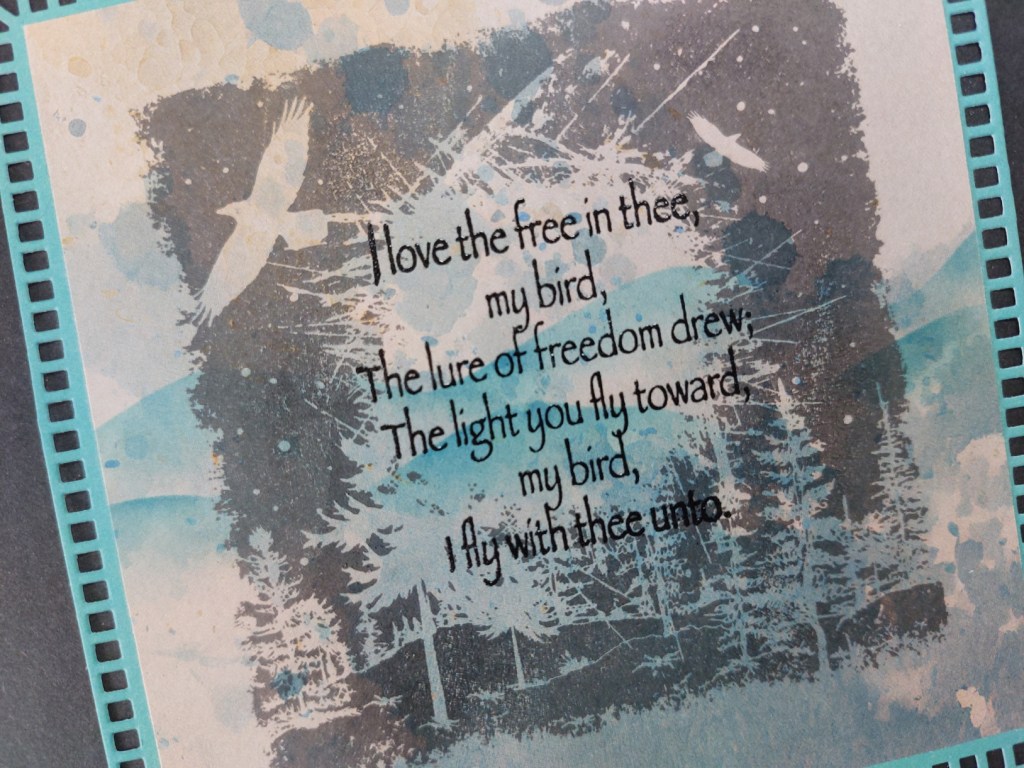 I love the free in thee,
my bird,
The lure of freedom drew;
The light you fly toward,
my bird,
I fly with thee unto.